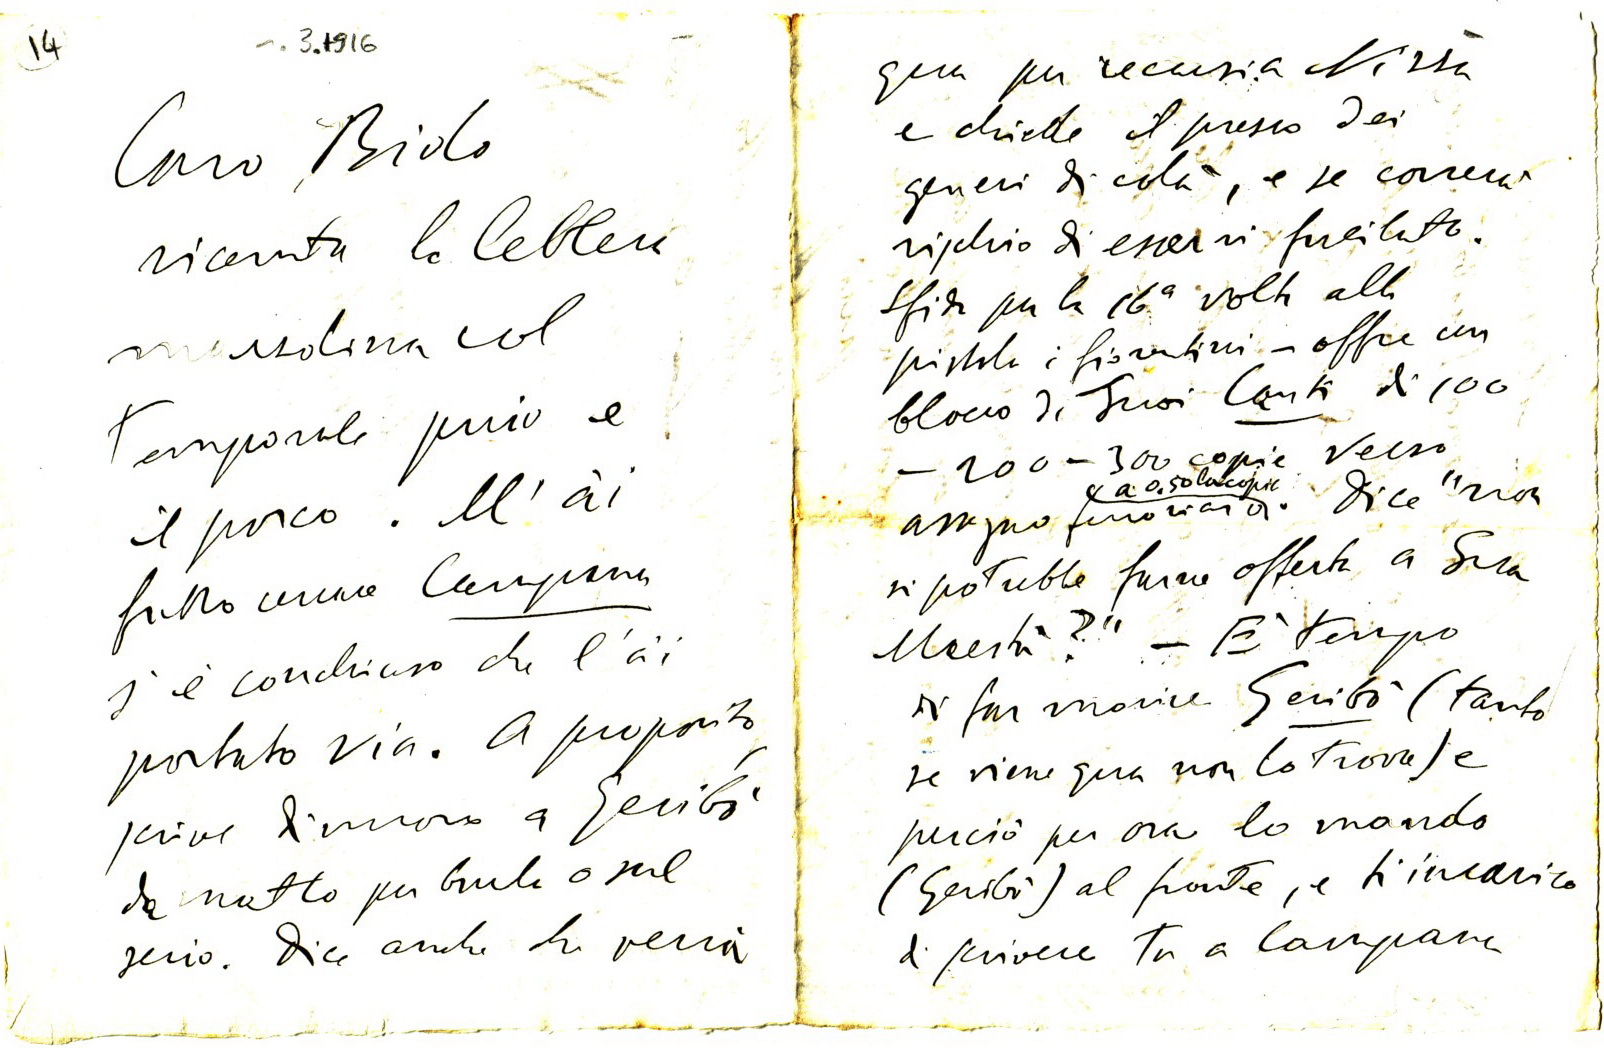 14
-. 3.1916
Caro Bido
ricevuta la lettera
col
temporale pino e
il porco. M'ài
fatto
Campana
s'è conchiuso che l'ài
portato via. A proposito,
scrive di nuovo a Geribò
da matto per burla o sul
serio. Dice anche che verrà
qua per recarsi a Nissà
e chiede il prezzo dei
generi di colà, e se correrà
rischio di esservi fucilato.
Sfida per la 16ª volta alla
pistola i fiorentini — offre un
blocco di Suoi Canti di 100
— 200 — 300 copie verso
a 0.50 la copia
assegno ferroviario. Dice "non
si potrebbe farne offerta a Sua
Maestà?" — È tempo
di far morire Geribò (tanto
se viene qua non lo trova) e
perciò per ora lo mando
(Geribò) al fronte, e ti incarico
di scrivere tu a Campana